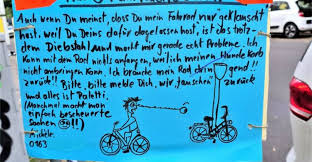 Auch wenn Du meinst, dass Du mein Fahrrad nur geklaut
hast, weil Du Deins dafür dagelassen hast, ist das trotz-
dem Diebstahl und macht mir gerade echt Probleme. Ich
kann mit dem Rad nichts anfangen, weil ich meinen Hundekorb
nicht anbringen kann. Ich brauche mein Rad dringend!!
zurück! Bitte, bitte melde Dich, wir tauschen zurück
und alles ist Paletti.
(Manchmal macht man
einfach bescheuerte
Sachen !!)
0163